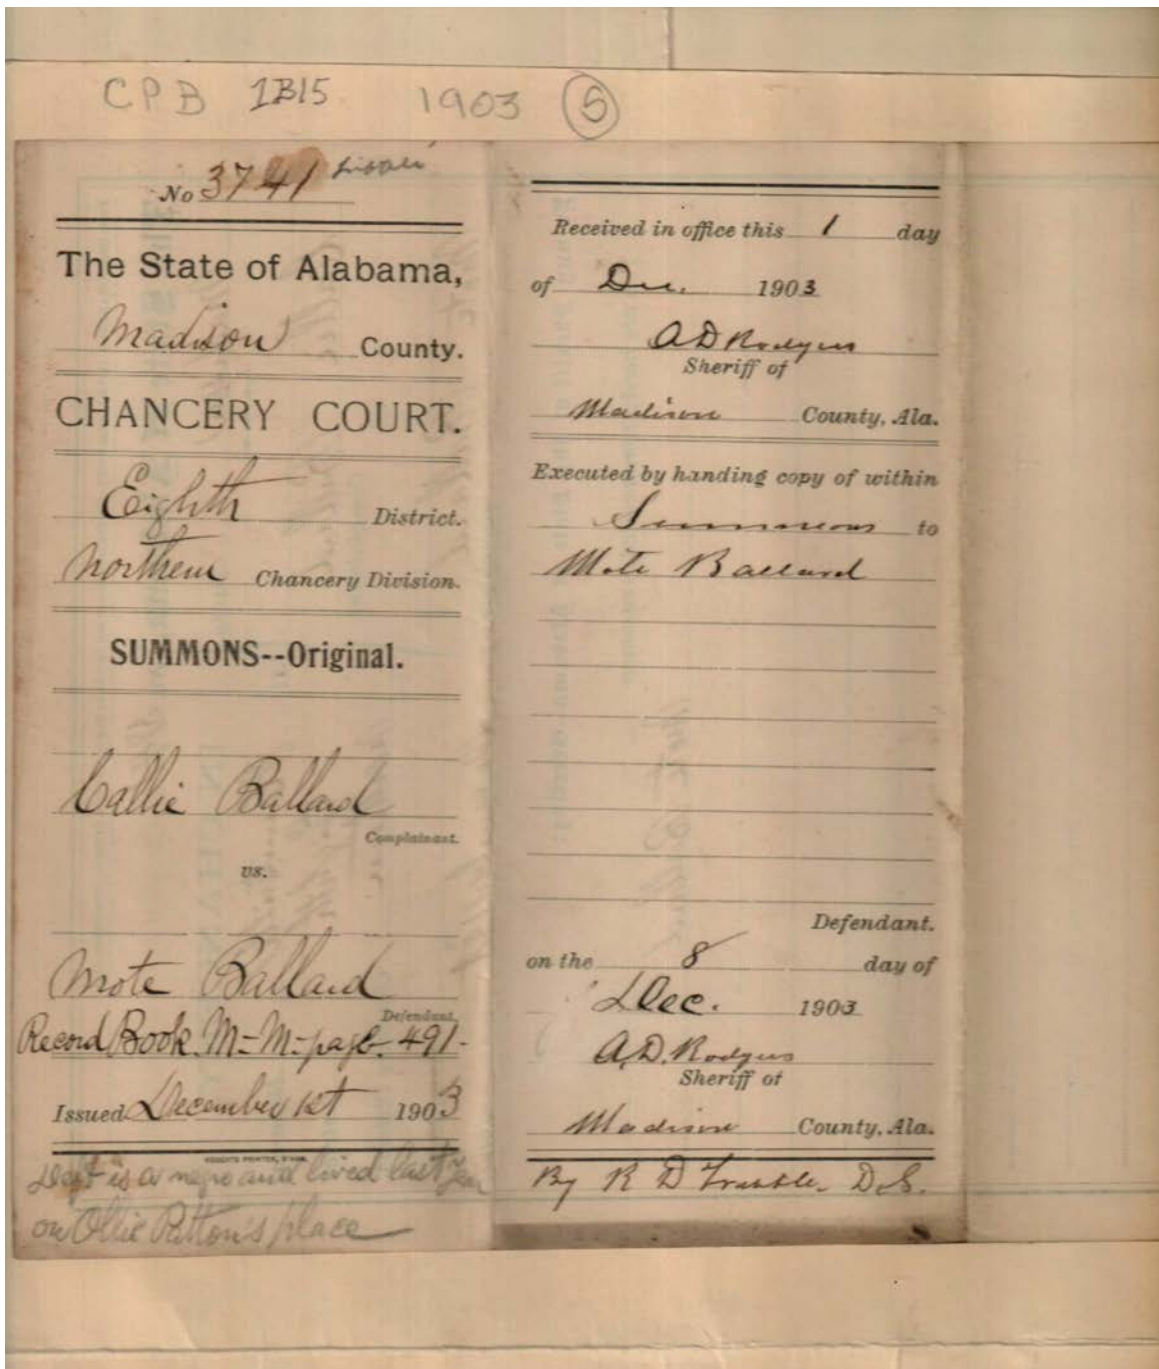 CPB 1B15 1903 5
No 3741
The State of Alabama,
Madison County.
CHANCERY COURT.
Eighth District.
Northern Chancery Division.
SUMMONS--Original.
Callie Ballard
Complainant.
vs.
Mote Ballard
Defendant.
Record Book. M-M-page. 491-
Issued December 1st 1903
Deft is a negro and lived last year
on Ollie Patton's place
Received in office this 1 day
of Dec. 1903
A D Rodgers
Sheriff of
Madison County, Ala.
Executed by handing copy of within
Summons to
Mote Ballard
Defendant.
on the 8 day of
Dec. 1903
A.D. Rodgers
Sheriff of
Madison County, Ala.
By R D D.S.